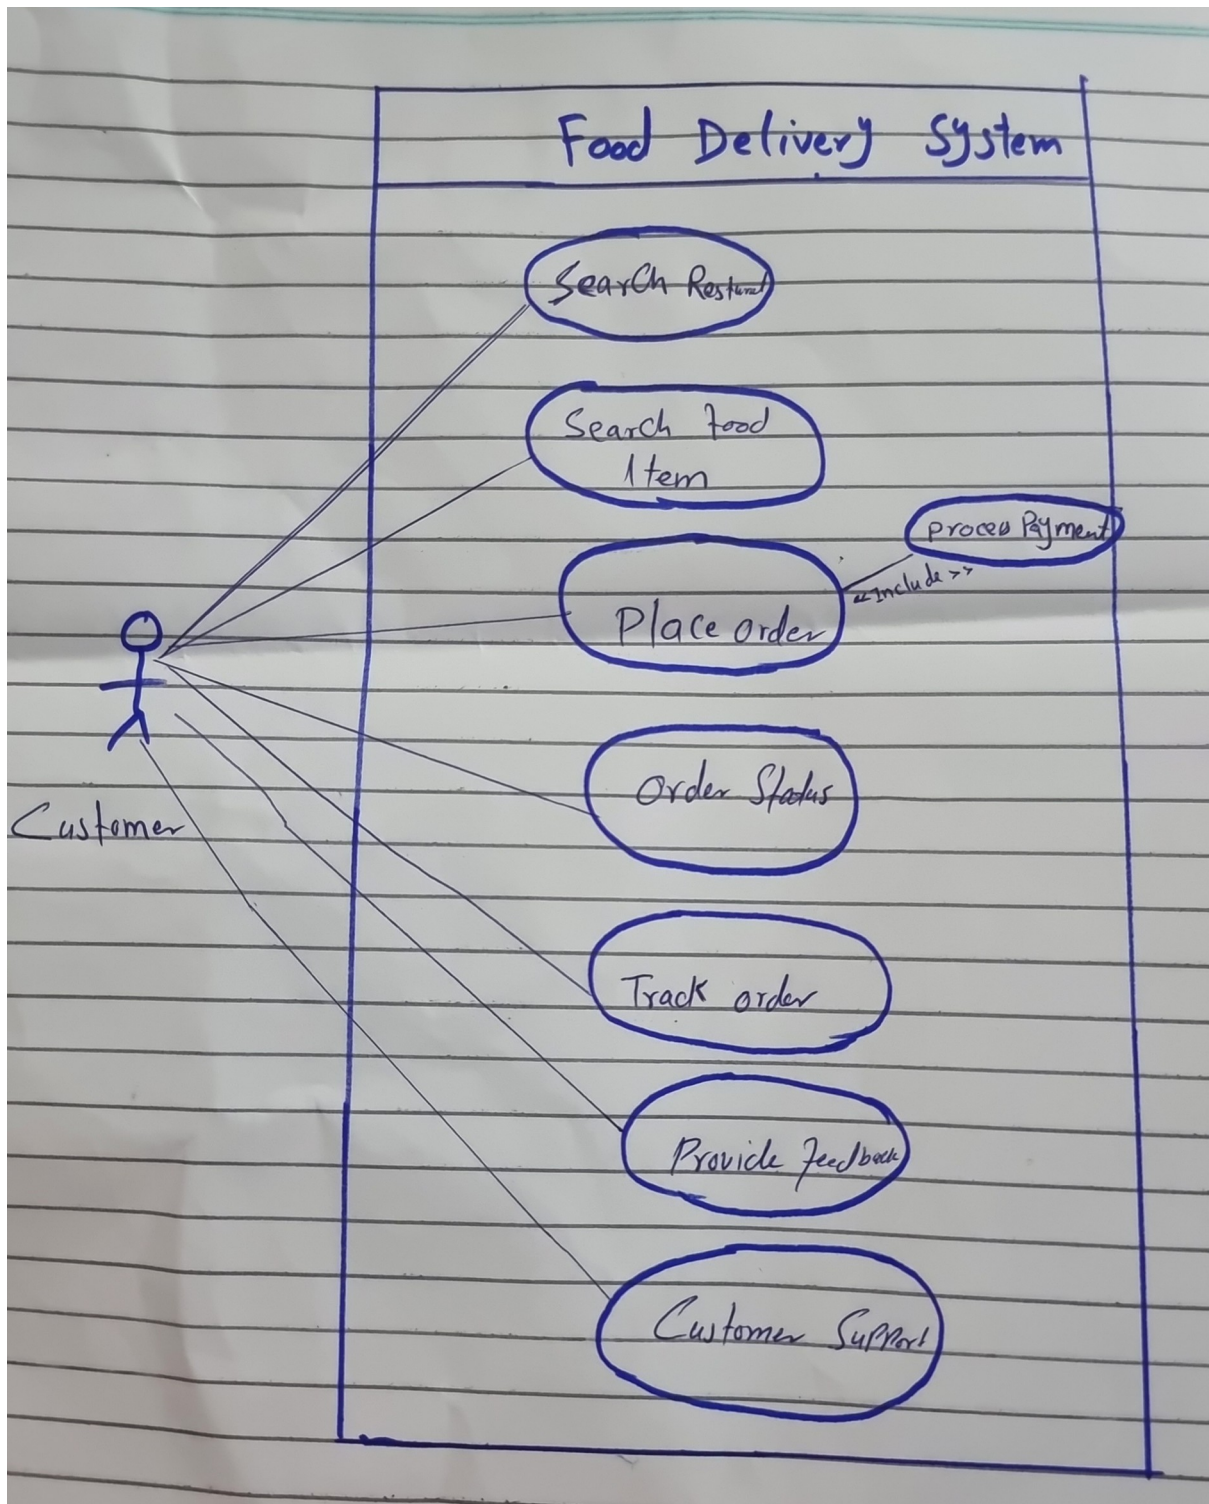 Food Delivery System
Search
Search Food
Item
Process Payment
<<Include>>
Place order
Order Status
Customer
Track order
Provide Feedback
Customer Support